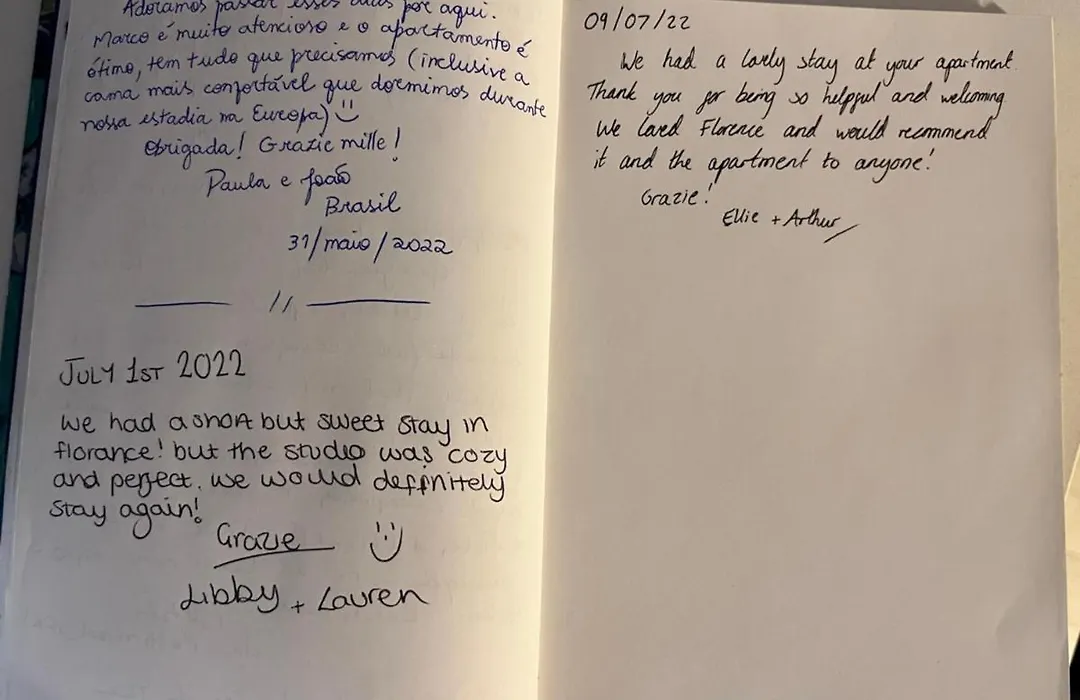 Adoramos passar esses dias por aqui.
Marco é muito atencioso e o apartamento é
ótimo, tem tudo que precisamos (inclusive a
cama mais confortável que dormimos durante
nossa estadia na Europa) :)
Obrigada! Grazie mille!
Paula e João
Brasil
31/maio/2022
//
JULY 1ST 2022
We had a short but sweet stay in
florance! but the studio was cozy
and perfect. we would definitely
stay again!
Grazie :)
Libby + Lauren
09/07/22
We had a lovely stay at your apartment.
Thank you for being so helpful and welcoming.
We loved Florence and would recommend
it and the apartment to anyone!
Grazie!
Ellie + Arthur